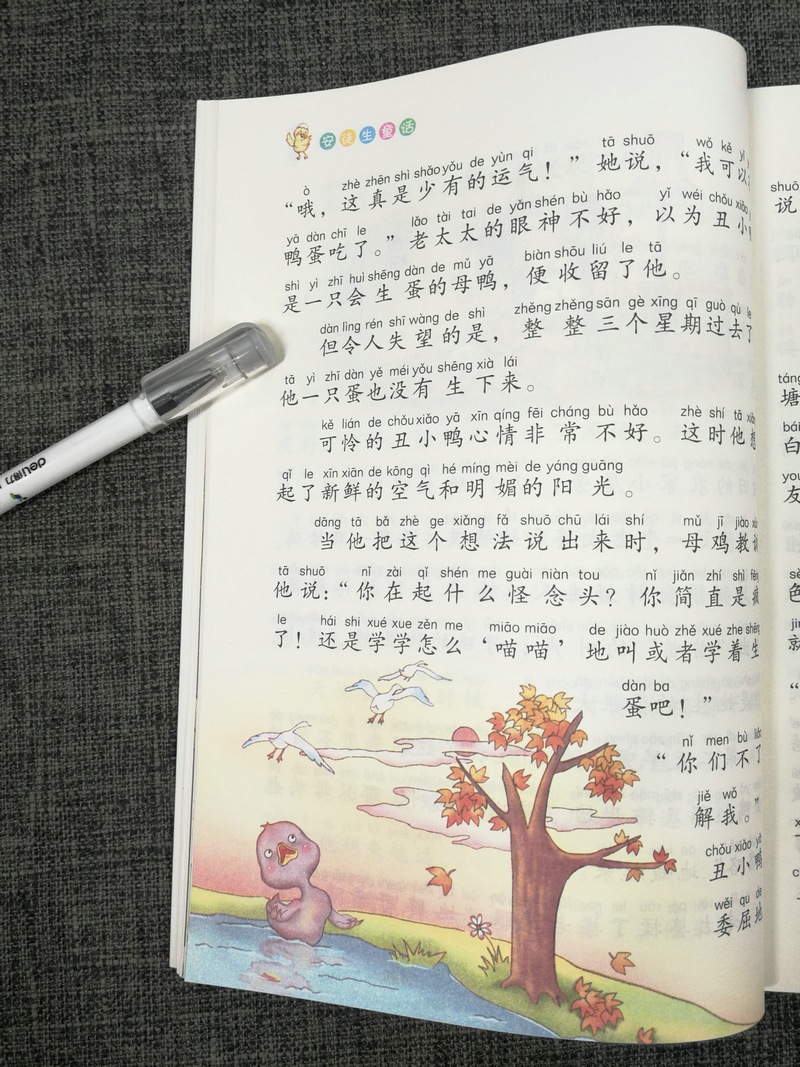 安徒生童话
ò zhè zhēn shì shǎo yǒu de yùn qi tā shuō wǒ kě yǐ
“哦，这真是少有的运气！”她说，“我可以
yā dàn chī le lǎo tài tai de yǎn shén bù hǎo yǐ wéi chǒu xiǎo
鸭蛋吃了。”老太太的眼神不好，以为丑小
shì yì zhī huì shēng dàn de mǔ yā biàn shōu liú le tā
是一只会生蛋的母鸭，便收留了他。
dàn lìng rén shī wàng de shì zhěng zhěng sān gè xīng qī guò qù le
但令人失望的是，整整三个星期过去了
tā yì zhī dàn yě méi yǒu shēng xià lái
他一只蛋也没有生下来。
kě lián de chǒu xiǎo yā xīn qíng fēi cháng bù hǎo zhè shí tā xiǎng
可怜的丑小鸭心情非常不好。这时他想
qǐ le xīn xiān de kōng qì hé míng mèi de yáng guāng
起了新鲜的空气和明媚的阳光。
dāng tā bǎ zhè ge xiǎng fǎ shuō chū lái shí mǔ jī jiào xùn
当他把这个想法说出来时，母鸡教训
tā shuō nǐ zài qǐ shén me guài niàn tou nǐ jiǎn zhí shì fēng
他说：“你在起什么怪念头？你简直是疯
le hái shi xué xue zěn me miāo miāo de jiào huò zhě xué zhe shēng
了！还是学学怎么‘喵喵’地叫或者学着生
dàn ba
蛋吧！”
nǐ men bù liǎo
“你们不了
jiě wǒ
解我。”
chǒu xiǎo yā
丑小鸭
wěi qu de
委屈地
deli得力
shuō
说
táng
塘
bái
白
yǒu
友